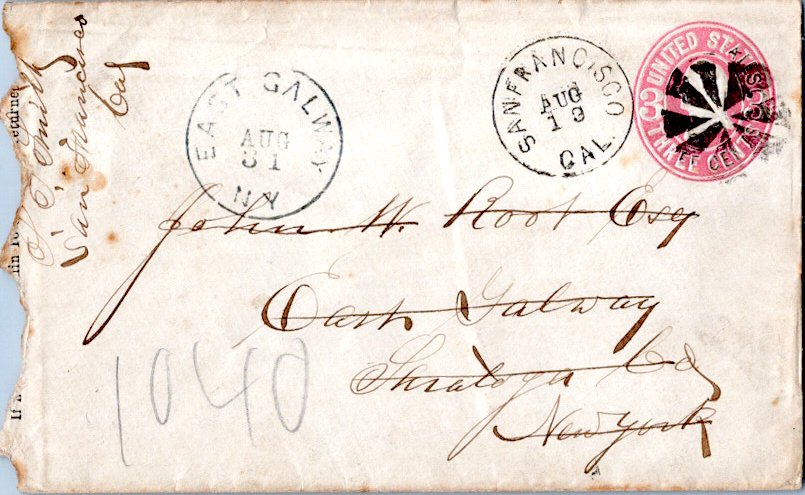 eturned
hin 10
If n
Smith
San Francisco
Cal
EAST GALWAY
AUG
31
N Y
SAN FRANCISCO
AUG
19
CAL.
UNITED STATES
3 3
THREE CENTS
John W. Root Esq
East Galway
Saratoga Co
New York
1040